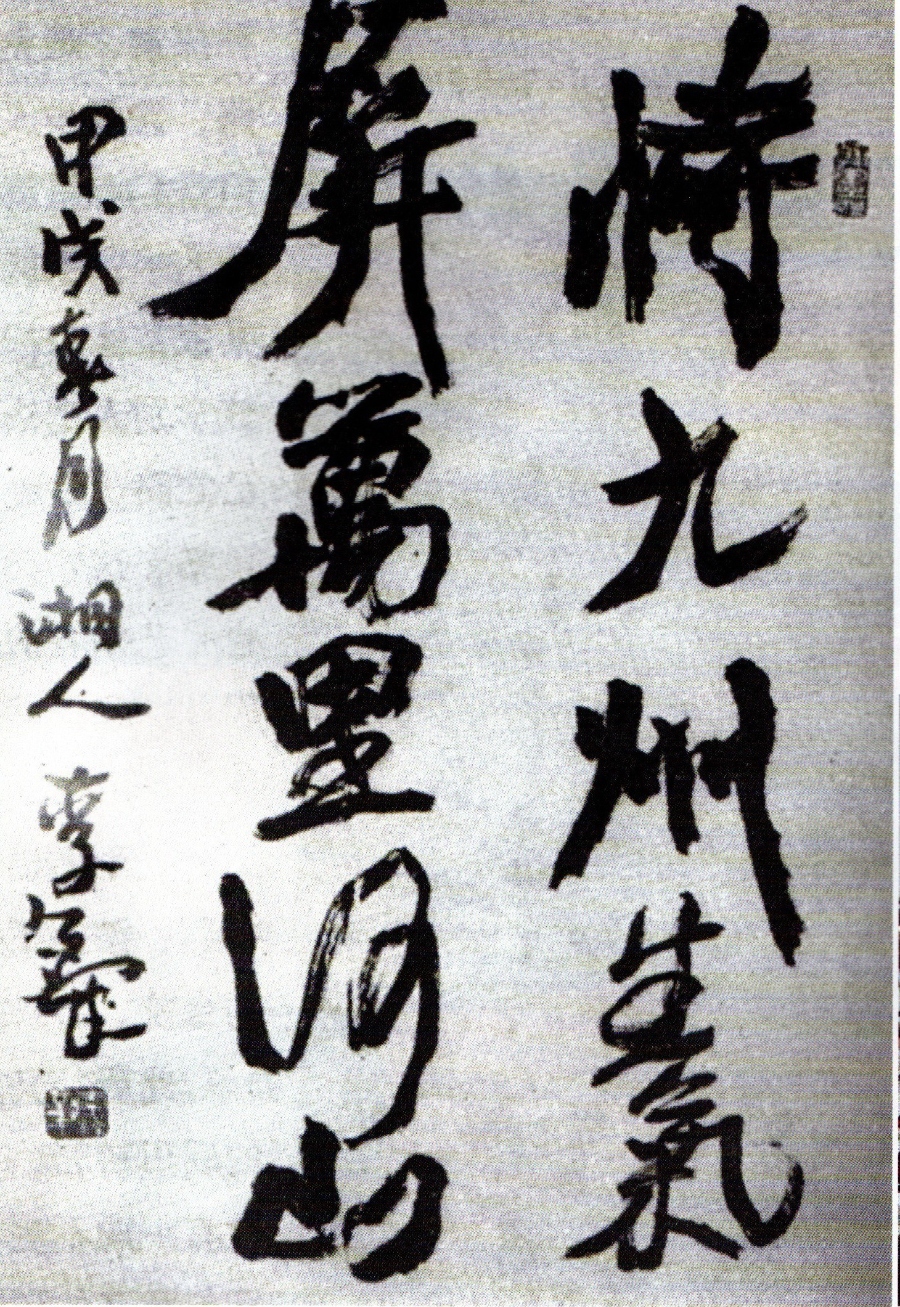 恃九州生氣
屏萬里河山
甲戌春月 湘人 李鐸